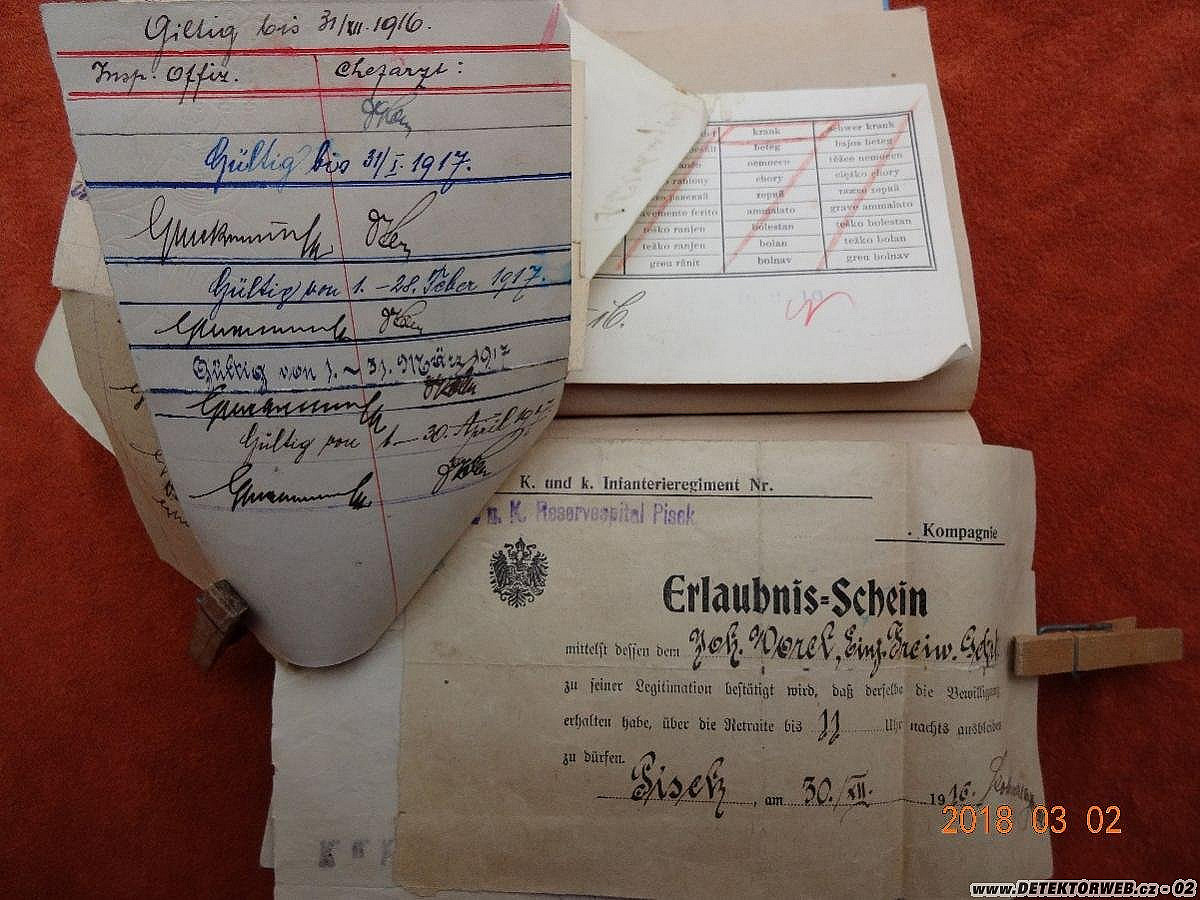 Giltig bis 31/XII. 1916.
Insp. Offiz. Chefarzt:
Gültig bis 31/I. 1917.
Gültig von 1. - 28. Feber 1917.
Gültig von 1. - 31. März 1917
Gültig von 1 - 30. April
krank schwer krank
beteg bajos beteg
nemocen těžce nemocen
raniony chory ciężko chory
ammalato grave ammalato
gravemente ferito
teško ranjen bolestan teško bolestan
težko ranjen bolan težko bolan
greu rănit bolnav greu bolnav
K. und k. Infanterieregiment Nr.
u. K. Reservespital Pisek
. Kompagnie
Erlaubnis-Schein
mittelst dessen dem Joh. Vorel, Einj. Freiw.
zu seiner Legitimation bestätigt wird, daß derselbe die Bewilligung
erhalten habe, über die Retraite bis 11 Uhr nachts ausbleiben
zu dürfen.
Pisek, am 30./XII. 1916.
2018 03 02
www.DETEKTORWEB.cz - 02